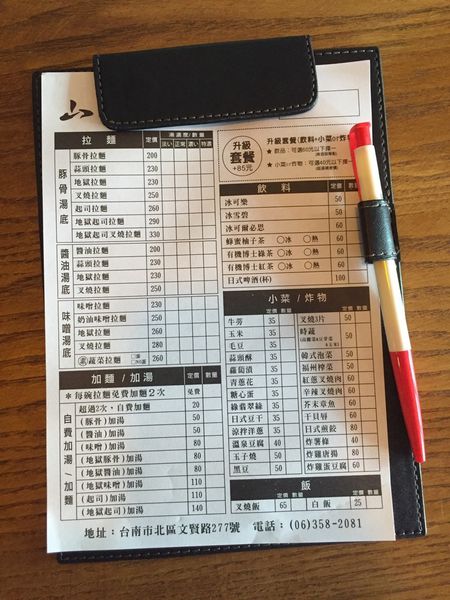 山
升級
套餐
+85元
升級套餐(飲料+小菜or炸
拉麵 定價 湯濃度/數量
淡い 正常 濃い 特濃
豚骨湯底
豚骨拉麵 200
蒜頭拉麵 230
地獄拉麵 230
叉燒拉麵 250
起司拉麵 260
地獄起司拉麵 290
地獄起司叉燒拉麵 330
醬油湯底
醬油拉麵 230
蒜頭拉麵 230
地獄拉麵 230
叉燒拉麵 250
味噌湯底
味噌拉麵 230
奶油味噌拉麵 250
地獄拉麵 260
叉燒拉麵 280
蔬菜拉麵 260
加麵/加湯 定價 數量
*每碗拉麵免費加麵2次 免費
自費加湯/加麵
超過2次,自費加麵 20
(豚骨)加湯 50
(醬油)加湯 50
(味噌)加湯 80
(地獄豚骨)加湯 80
(地獄醬油)加湯 80
(地獄味噌)加湯 110
(起司)加湯 110
(地獄起司)加湯 140
飲料 定價 數量
冰可樂 50
冰雪碧 50
冰可爾必思 60
蜂蜜柚子茶 ○冰 ○熱 60
有機博士綠茶 ○冰 ○熱 60
有機博士紅茶 ○冰 ○熱 60
日式啤酒(杯) 100
小菜/炸物
定價 數量 定價 數量
牛蒡 35 叉燒3片 50
玉米 35 時蔬
毛豆 35
蒜頭酥 35 韓式泡菜
蘿蔔漬 35 福州榨菜
青蔥花 35 紅蔥叉燒肉
糖心蛋 35 辛辣叉燒肉
綠翡翠絲 35 芥末章魚
日式豆干 35 干貝唇
涼拌洋蔥 35 日式煎餃
溫泉豆腐 40 炸薯條
玉子燒 50 炸雞唐揚
黑豆 50 炸雞蛋豆腐
飯
定價 數量 定價 數量
叉燒飯 65 白飯 25
地址:台南市北區文賢路277號 電話:(06)358-2081